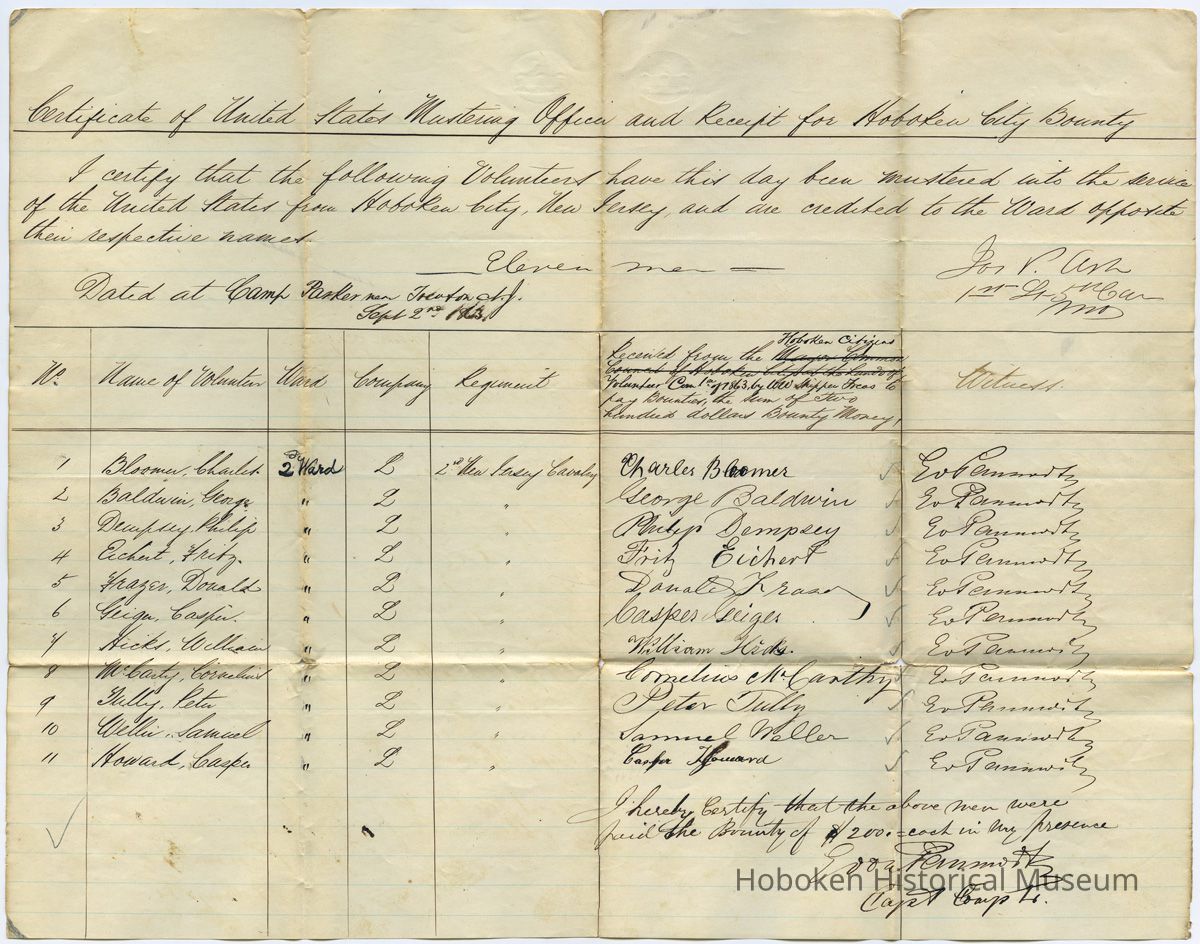 Certificate of United States Mustering Officer and Receipt for Hoboken City Bounty
I certify that the following Volunteers have this day been mustered into the service
of the United States from Hoboken City, New Jersey, and are credited to the Ward opposite
their respective names.
Eleven men
Jos P. Ash
1st Lt 5th Cav
Dated at Camp Parker near Trenton N.J.
Sept 2nd 1863
No. Name of Volunteer Ward Company Regiment
Hoboken Citizens
Received from the Mayor Common
Council of Hoboken City by the hands of
Volunteer Com of 1863, by Skipper Treas to
pay Bounties, the sum of two
hundred dollars Bounty Money,
Witness
1 Bloomer, Charles 2d Ward L 2d New Jersey Cavalry Charles Bloomer
2 Baldwin, George " L " George Baldwin
3 Dempsey, Philip " L " Philip Dempsey
4 Eichert, Fritz. " L " Fritz Eichert
5 Frazer, Donald " L " Donald Fraser
6 Geiger, Casper. " L " Casper Geiger
7 Hicks, William " L " William Hicks.
8 McCarty, Cornelius " L " Cornelius McCarthy
9 Tully, Peter " L " Peter Tully
10 Weller, Samuel " L " Samuel Weller
11 Howard, Casper " L " Casper Howard
I hereby Certify that the above men were
paid the Bounty of $200.= each in my presence
Capt Comp L.
Hoboken Historical Museum